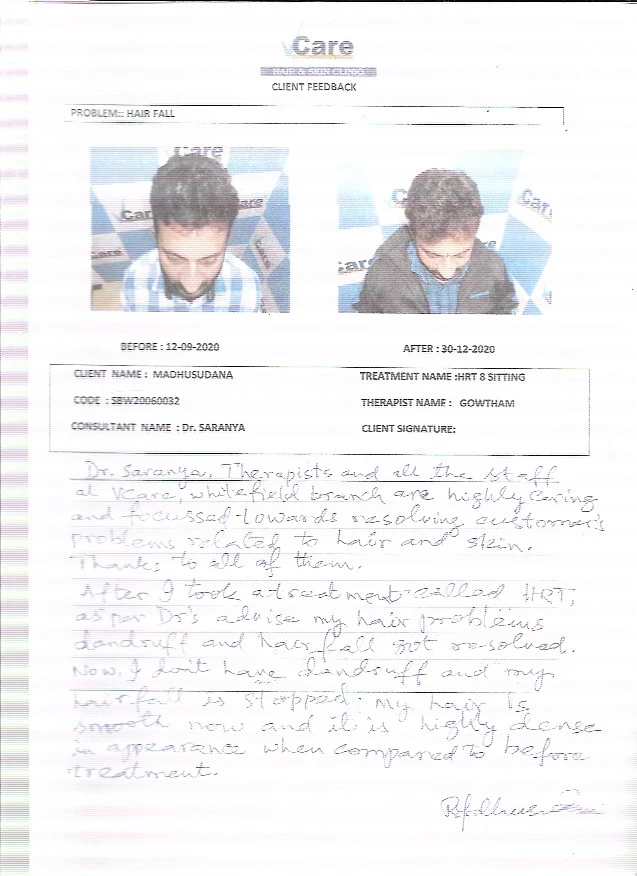 VCare
HAIR & SKIN CLINIC
CLIENT FEEDBACK
PROBLEM:: HAIR FALL
Care
Care
Care
Care
Care
BEFORE : 12-09-2020
AFTER : 30-12-2020
CLIENT NAME : MADHUSUDANA
TREATMENT NAME :HRT 8 SITTING
CODE : SBW20060032
THERAPIST NAME : GOWTHAM
CONSULTANT NAME : Dr. SARANYA
CLIENT SIGNATURE:
Dr. Saranya, Therapists and all the staff
at Vcare, whitefield branch are highly caring
and focussed towards resolving customer's
problems related to hair and skin.
Thanks to all of them.
After I took a treatment called HRT,
as per Dr's advise my hair problems
dandruff and hair fall got resolved.
Now, I don't have dandruff and my
hairfall is stopped. My hair is
smooth now and it is highly dense
in appearance when compared to before
treatment.